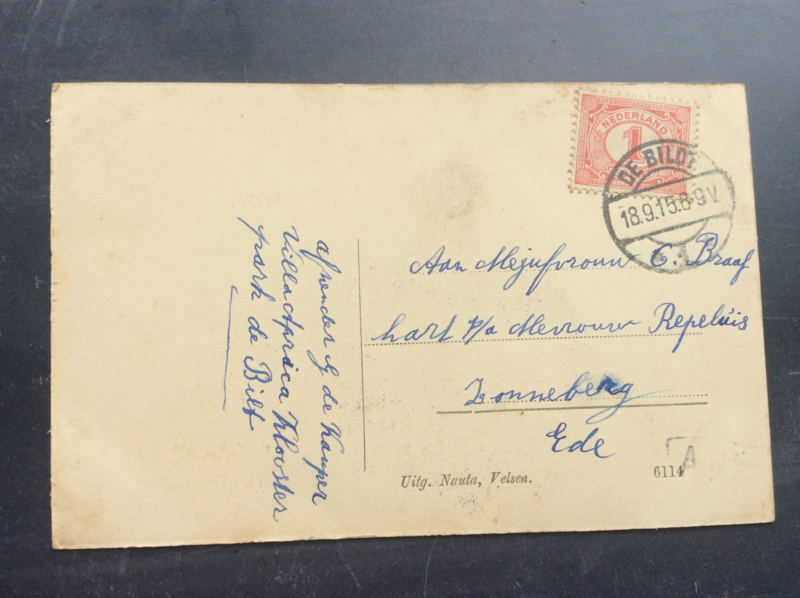 NEDERLAND
1
DE BILDT
18.9.15.8-9V.
1
Aan Mejufvrouw C. Braaf
hart p/a Mevrouw Repeluis
Zonneberg
Ede
afzender G de Kamper
Villa Aprica Klooster
park de Bilt
Uitg. Nauta, Velsen.
6114
A